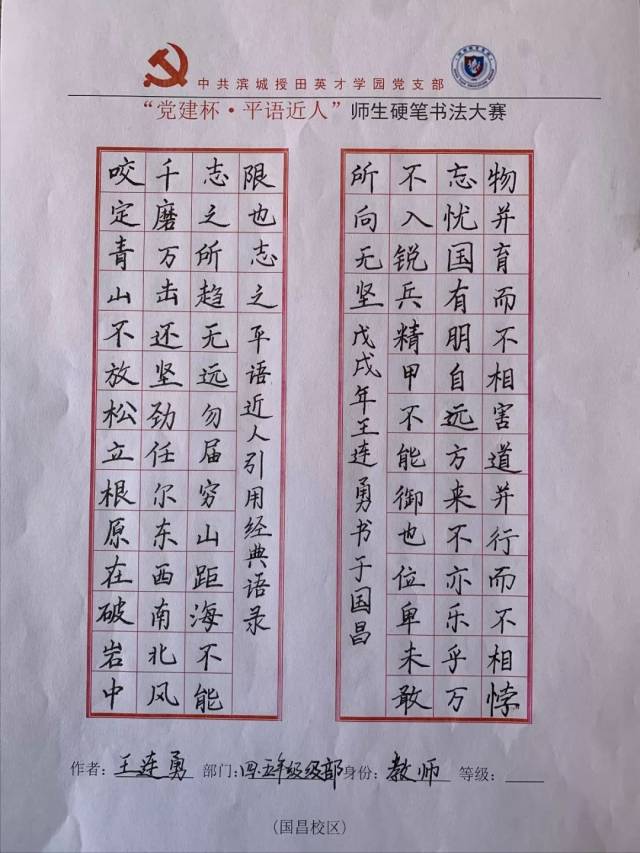 中共滨城授田英才学园党支部
“党建杯·平语近人”师生硬笔书法大赛
咬定青山不放松立根原在破岩中
千磨万击还坚劲任尔东西南北风
志之所趋无远勿届穷山距海不能
限也志之平语近人引用经典语录
所向无坚戊戌年王连勇书于国昌
不入锐兵精甲不能御也位卑未敢
忘忧国有朋自远方来不亦乐乎万
物并育而不相害道并行而不相悖
作者：王连勇 部门：四·五年级级部 身份：教师 等级：
（国昌校区）